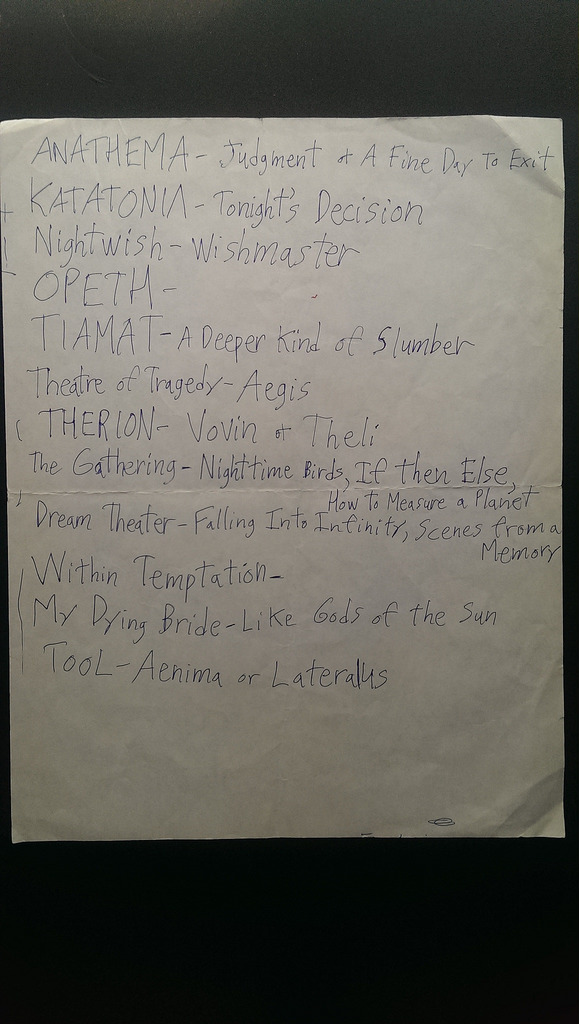 ANATHEMA - Judgment or A Fine Day To Exit
KATATONIA - Tonight's Decision
Nightwish - Wishmaster
OPETH -
TIAMAT - A Deeper Kind of Slumber
Theatre of Tragedy - Aegis
THERION - Vovin or Theli
The Gathering - Nighttime Birds, If then Else,
How to Measure a Planet
Dream Theater - Falling Into Infinity, Scenes from a
Memory
Within Temptation -
My Dying Bride - Like Gods of the Sun
TOOL - Aenima or Lateralus